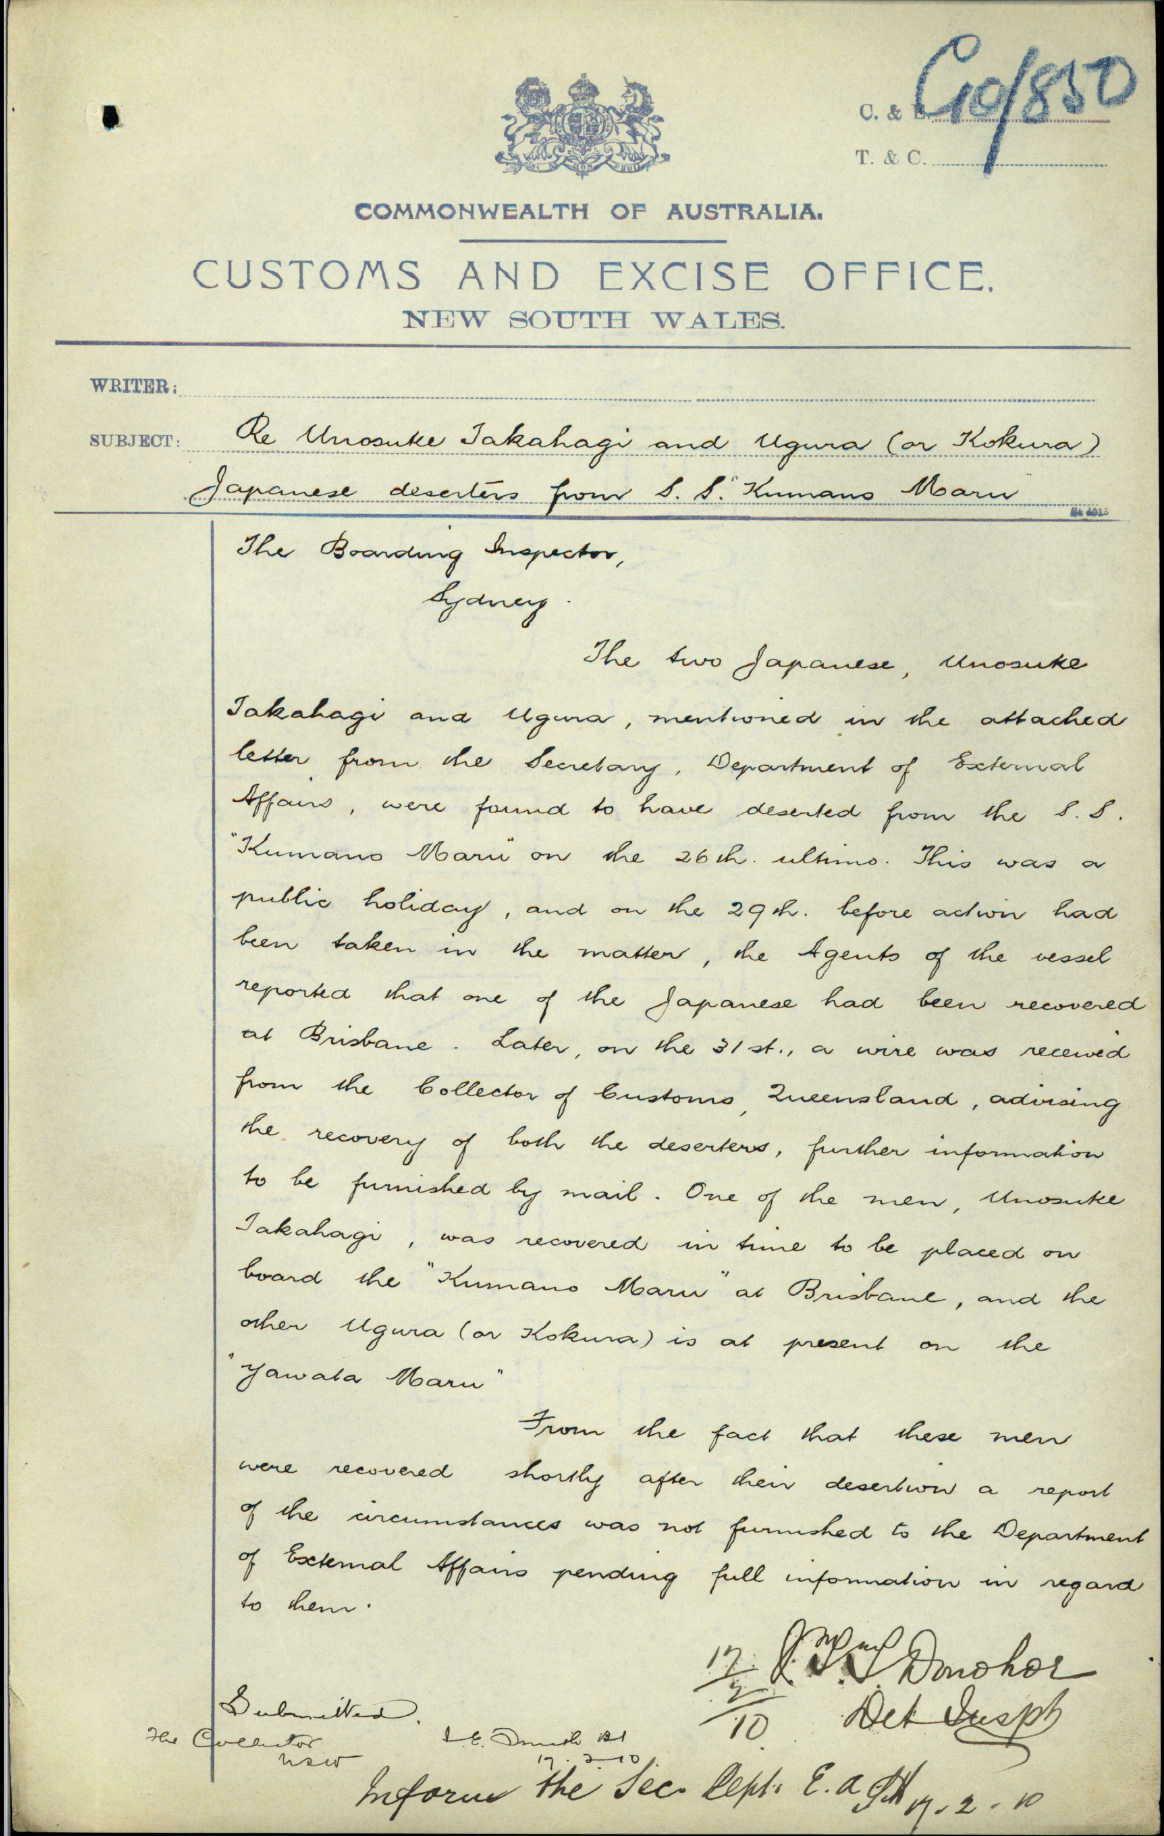 G10/850
C. & E.
T. & C.
COMMONWEALTH OF AUSTRALIA.
CUSTOMS AND EXCISE OFFICE.
NEW SOUTH WALES.
WRITER:
SUBJECT: Re Unosuke Takahagi and Ugura (or Kokura)
Japanese deserters from S. S. "Kumano Maru
The Boarding Inspector,
Sydney.
The two Japanese, Unosuke
Takahagi and Ugura, mentioned in the attached
letter from the Secretary, Department of External
Affairs, were found to have deserted from the S. S.
"Kumano Maru" on the 26th. ultimo. This was a
public holiday, and on the 29th. before action had
been taken in the matter, the Agents of the vessel
reported that one of the Japanese had been recovered
at Brisbane. Later, on the 31st., a wire was received
from the Collector of Customs, Queensland, advising
the recovery of both the deserters, further information
to be furnished by mail. One of the men, Unosuke
Takahagi, was recovered in time to be placed on
board the "Kumano Maru" at Brisbane, and the
other Ugura (or Kokura) is at present on the
"Yawata Maru"
From the fact that these men
were recovered shortly after their desertion a report
of the circumstances was not furnished to the Department
of External Affairs pending full information in regard
to them.
17/2/10 Donohoe
Det Inspr
Submitted.
The Collector
NSW
17.2.10
Inform the Sec. Dept. E. A 17.2.10